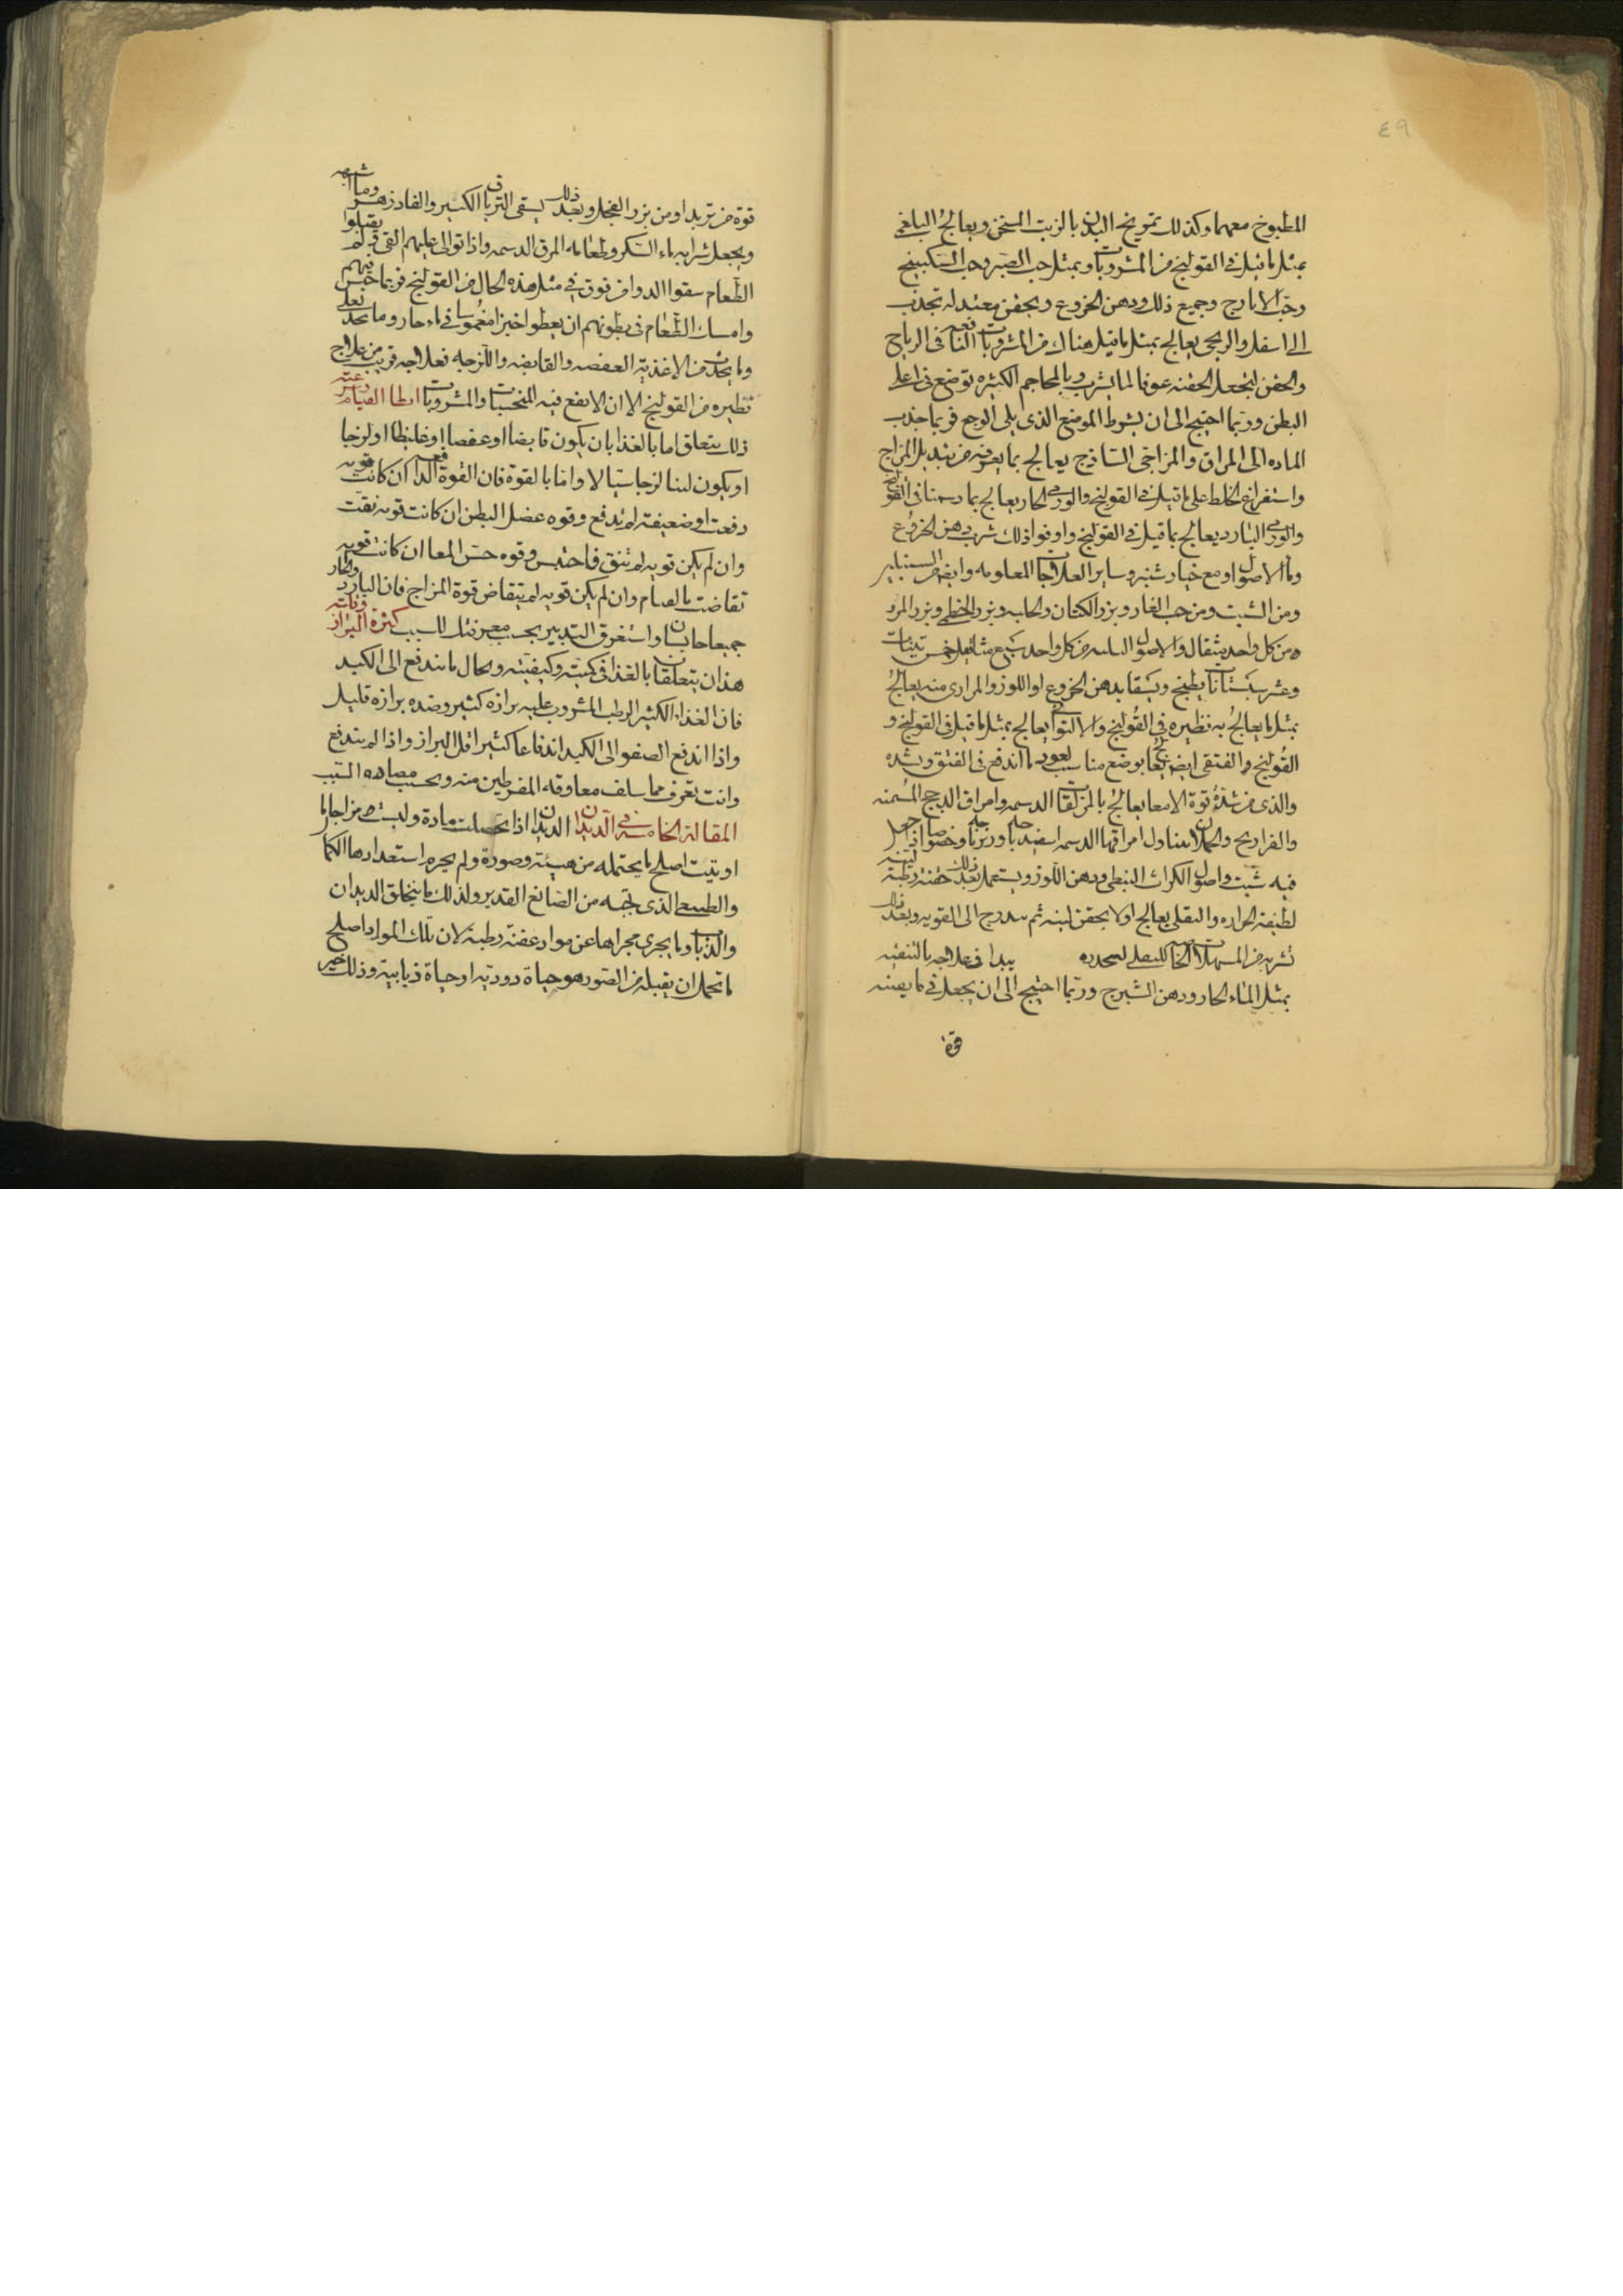 ٤٩
المطبوخ معهما وكذلك تمريخ البدن بالزيت السخن ويعالج البلغمى
بمثل ما قيل فى القولنج من المشروبات وبمثل حب الصبر وحب السكبينج
وحب الايارج وجميع ذلك ودهن الخروع وبحقن معتدلة تجذب
الى اسفل والريحى يعالج بمثل ما قيل هناك من المشروبات النافعة فى الرياح
والحقن لتجعل الحقنه عونا لما يشرب وبالمحاجم الكثيره توضع فى اعلى
البطن وربما احتيج الى ان يشرط الموضع الذى يلى الوجع فربما جذب
الماده الى المراق والمزاجى الساذج يعالج بما يعرفه من تبديل المزاج
واستفراغ الخلط على ما قيل فى القولنج والورمى الحار يعالج بما رسمنا فى القولنج
والورمى البارد يعالج بما قيل فى القولنج واوفق ذلك شرب دهن الخروع
وماء الاصول او مع خيار شنبر وساير العلاجات المعلومه وايضا من
ومن الشبت ومن حب الغار وبزر الكتان والحلبه وبزر الخطمى وبزر المرو
من كل واحد مثقال والاصول من كل واحد سبع مثاقيل خمس تينات
وعشر سبستانات يطبخ ويسقا بدهن الخروع او اللوز والمرارى منه يعالج
بمثل ما يعالج به نظيره فى القولنج والالتوائى يعالج بمثل ما قيل فى القولنج و
القولنج والفتقى ايضا يعالج بوضع مناسب لعود ما اندفع فى الفتق وشده
والذى من شدة قوة الامعا يعالج بالمزلقات الدسمه وامراق الدجج المسمنه
والفراريج والحملان يتناول امراقها الدسمه اسفيدباجه وزيرباجه وخصوصا اذا جعل
فيه شبت واصول الكراث النبطى ودهن اللوز ويستعمل بعد ذلك حقنه لينة رطبة
لطيفة الحراره والثقلى يعالج اولا بحقن لينه ثم يتدرج الى القويه وبعد ذلك
تشربه من المسهلات يبدا فى علاجه بالتنقيه
بمثل الماء الحار ودهن الشيرج وربما احتيج الى ان يجعل فى ما يقيئه
قوة
قوة من تربد او من بزر الفجل وبعد ذلك يسقى الترياق الكبير والفادزهر وما اشبهه
ويجعل شرابه ماء السكر وطعامه المرق الدسمه واذا توالى عليهم القى فلم يقبلوا
الطعام سقوا الدوا من فوق فى مثل هذه الحال من القولنج فربما حبس قيهم
وامساك الطعام فى بطونهم ان يعطوا خبزا مغموسا فى ماء حار وما
وما يحدث من الاغذية العفصه والقابضه واللزجه فعلاجه قريب من علاج
نظيره من القولنج الا ان الانفع فيه المتحسيات والمشروبات ابطا القيام وسرعته
ذلك يتعلق اما بالغذا بان يكون قابضا او عفصا او غليظا او لزجا
او يكون لينا لزجا سيالا واما بالقوة فان القوة الدافعة ان كانت قويه
دفعت او ضعيفة لم تدفع وقوه عضل البطن ان كانت قويه نقت
وان لم يكن قويه لم تنق فاحتبس وقوه حس المعا ان كانت قويه
تقاضت بالقيام وان لم يكن قويه لم يتقاض قوة المزاج فان البارد والحار
جميعا حابسان واستغرق التدبير بحسب معرفتك للسبب كثرة البراز وقلته
هذان يتعلقان بالغذا فى كميته وكيفيته وبحال ما يندفع الى الكبد
فان الغذاء الكثير الرطب المشروب عليه برازه كثير وضده برازه قليل
واذا اندفع الصفو الى الكبد اندفاعا كثيرا قل البراز واذا لم يندفع
وانت تعرف مما سلف معاوقه المفرطين منه وبحسب مضاده السبب
المقالة الخامسة فى الديدان الديدان اذا تحصلت مادة وليست مزاجا ما
اوتيت اصلح ما يحتمله من هيئة وصورة ولم يحرم استعدادها الكمال
والطبيعى الذى تلحقه من الصانع القدير ولذلك ما يتخلق الديدان
والذباب وما يجرى مجراها عن مواد عفنة رطبة لان تلك المواد اصلح
ما تحمل ان يقبله من الصور هو حياة دودية او حياة ذبابية وذلك خير